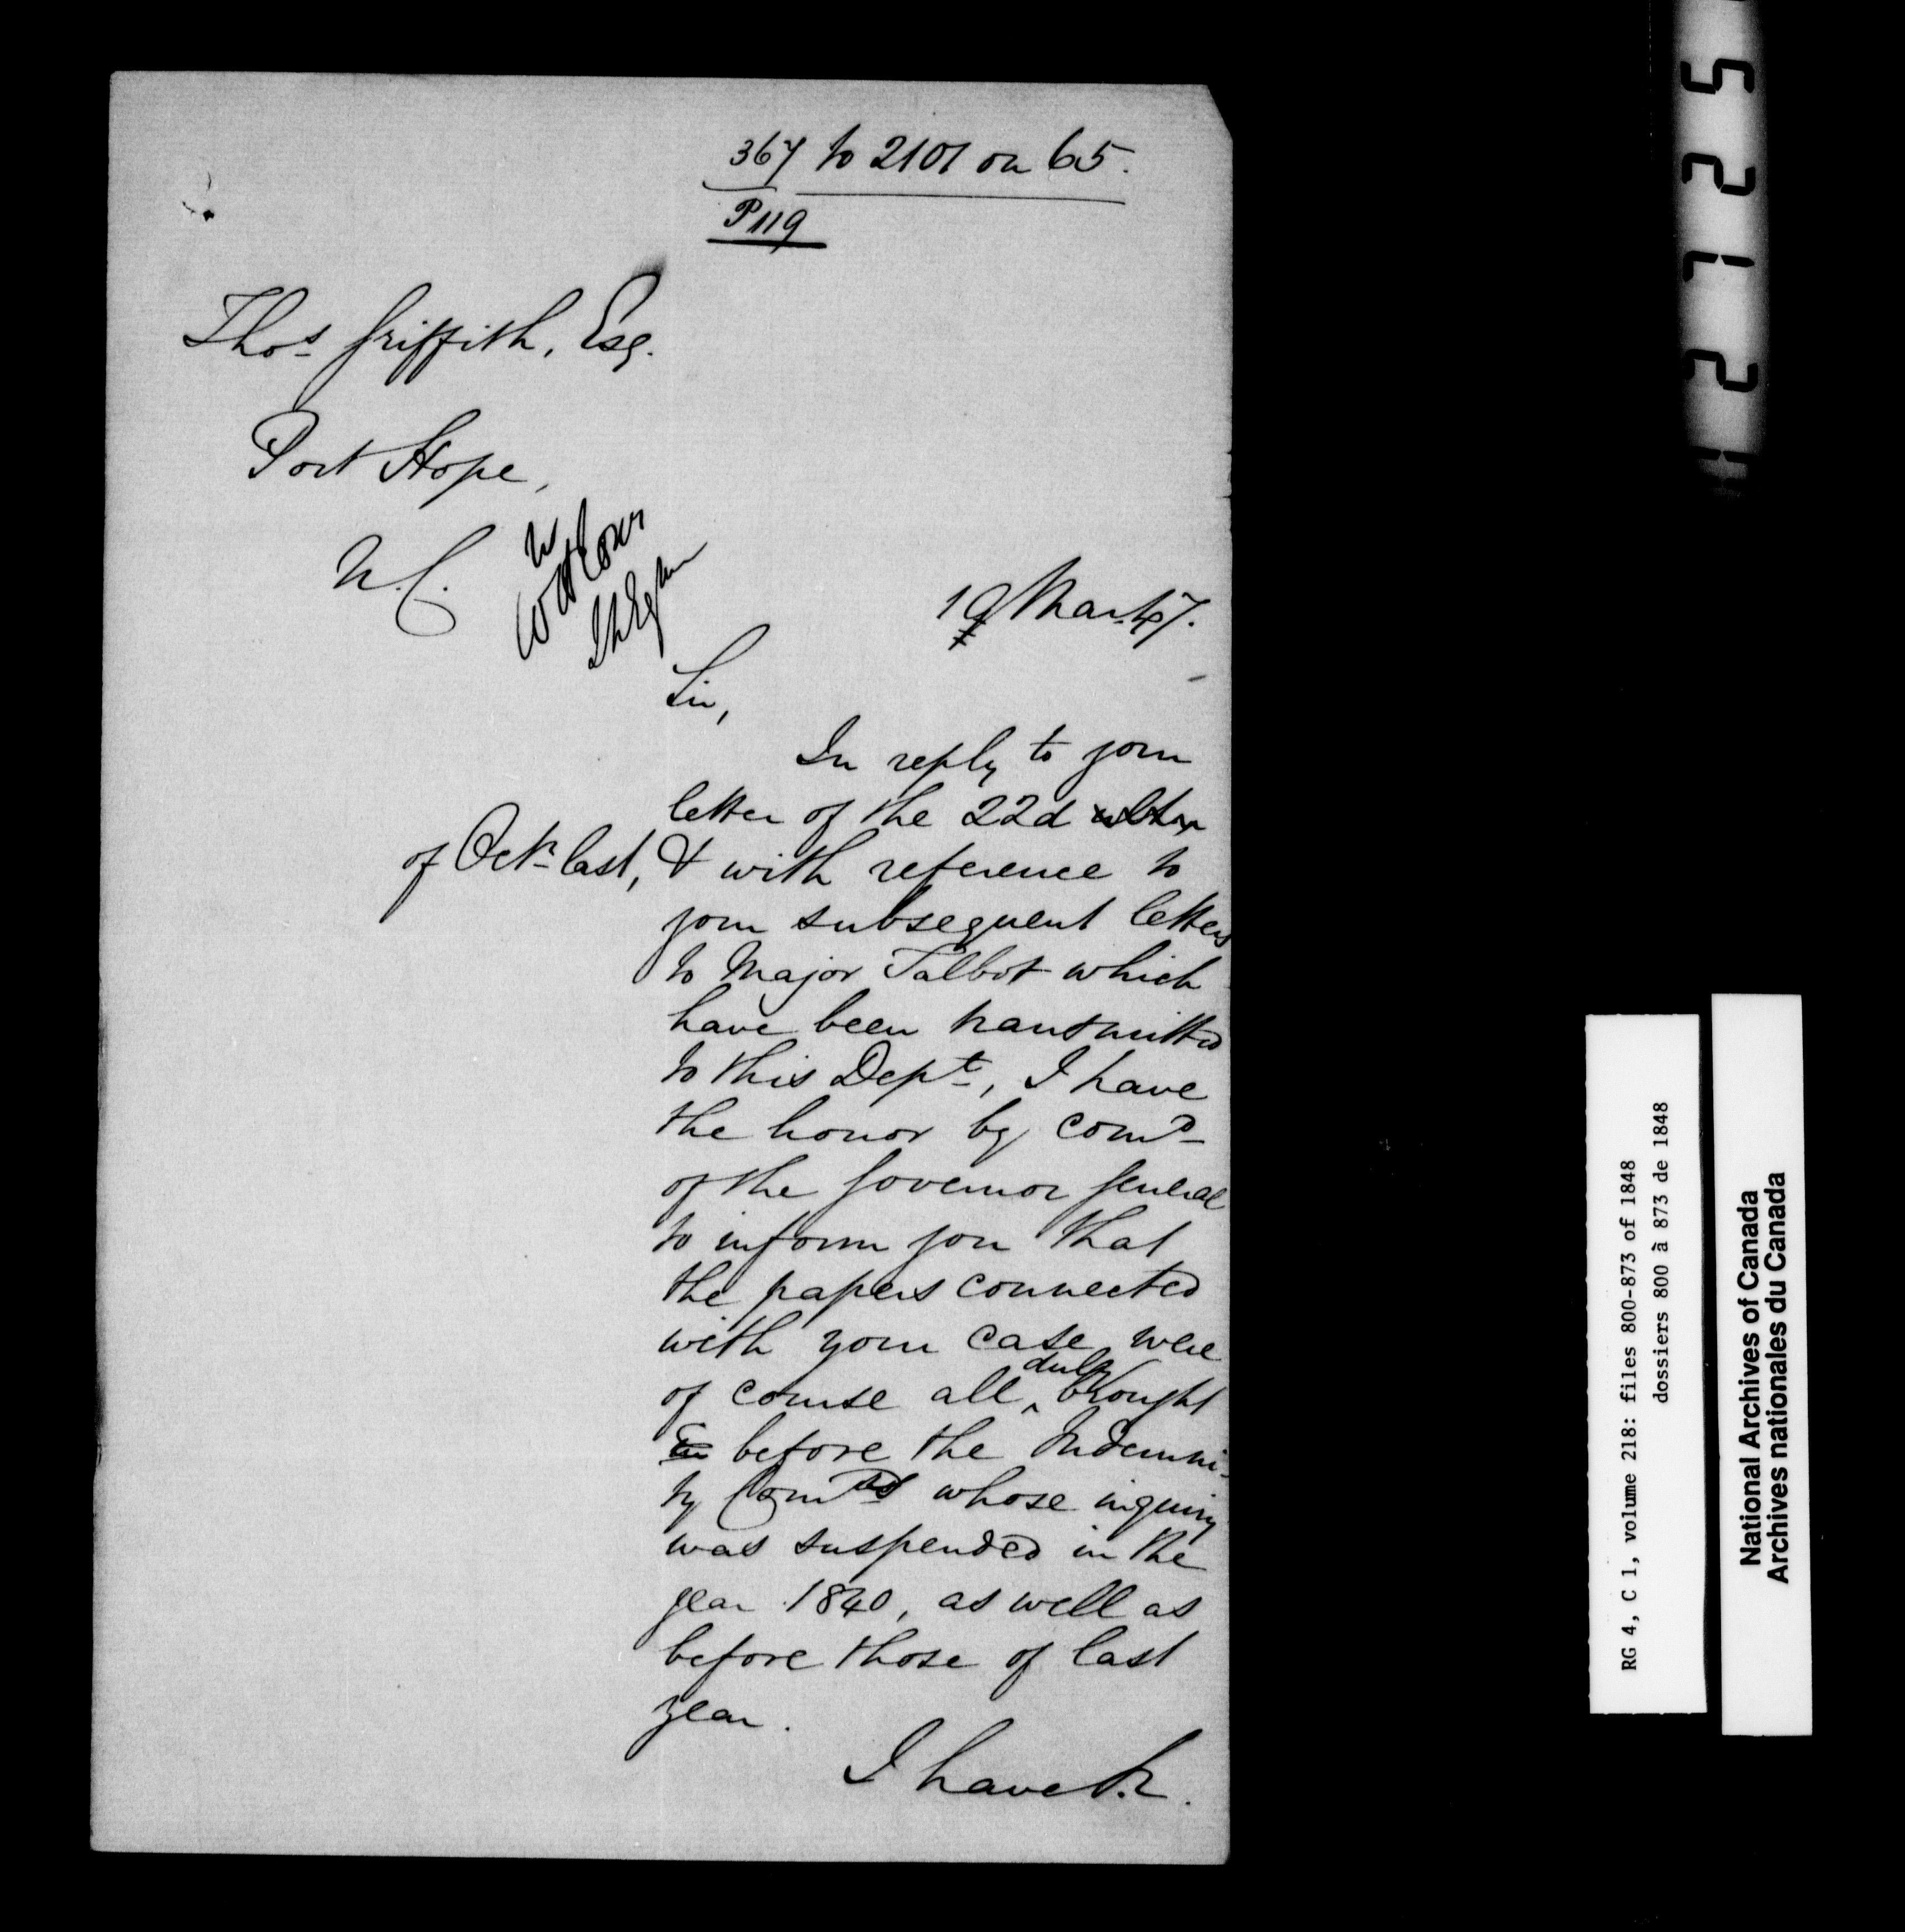 367 to 2101 on 65.
P 119
Thos Griffith, Esq.
Port Hope,
U.C.
19 Mar. 47.
Sir,
In reply to your
letter of the 22d ulto
of Octr last, & with reference to
your subsequent letters
to Major Talbot which
have been transmitted
to this Dept, I have
the honor by comd
of the Governor General
to inform you that
the papers connected
with your case were
of course all duly brought
before the Indemni-
ty Comrs whose inquiry
was suspended in the
year 1840, as well as
before those of last
year.
I have &.
12725
RG 4, C 1, volume 218: files 800-873 of 1848
dossiers 800 à 873 de 1848
National Archives of Canada
Archives nationales du Canada